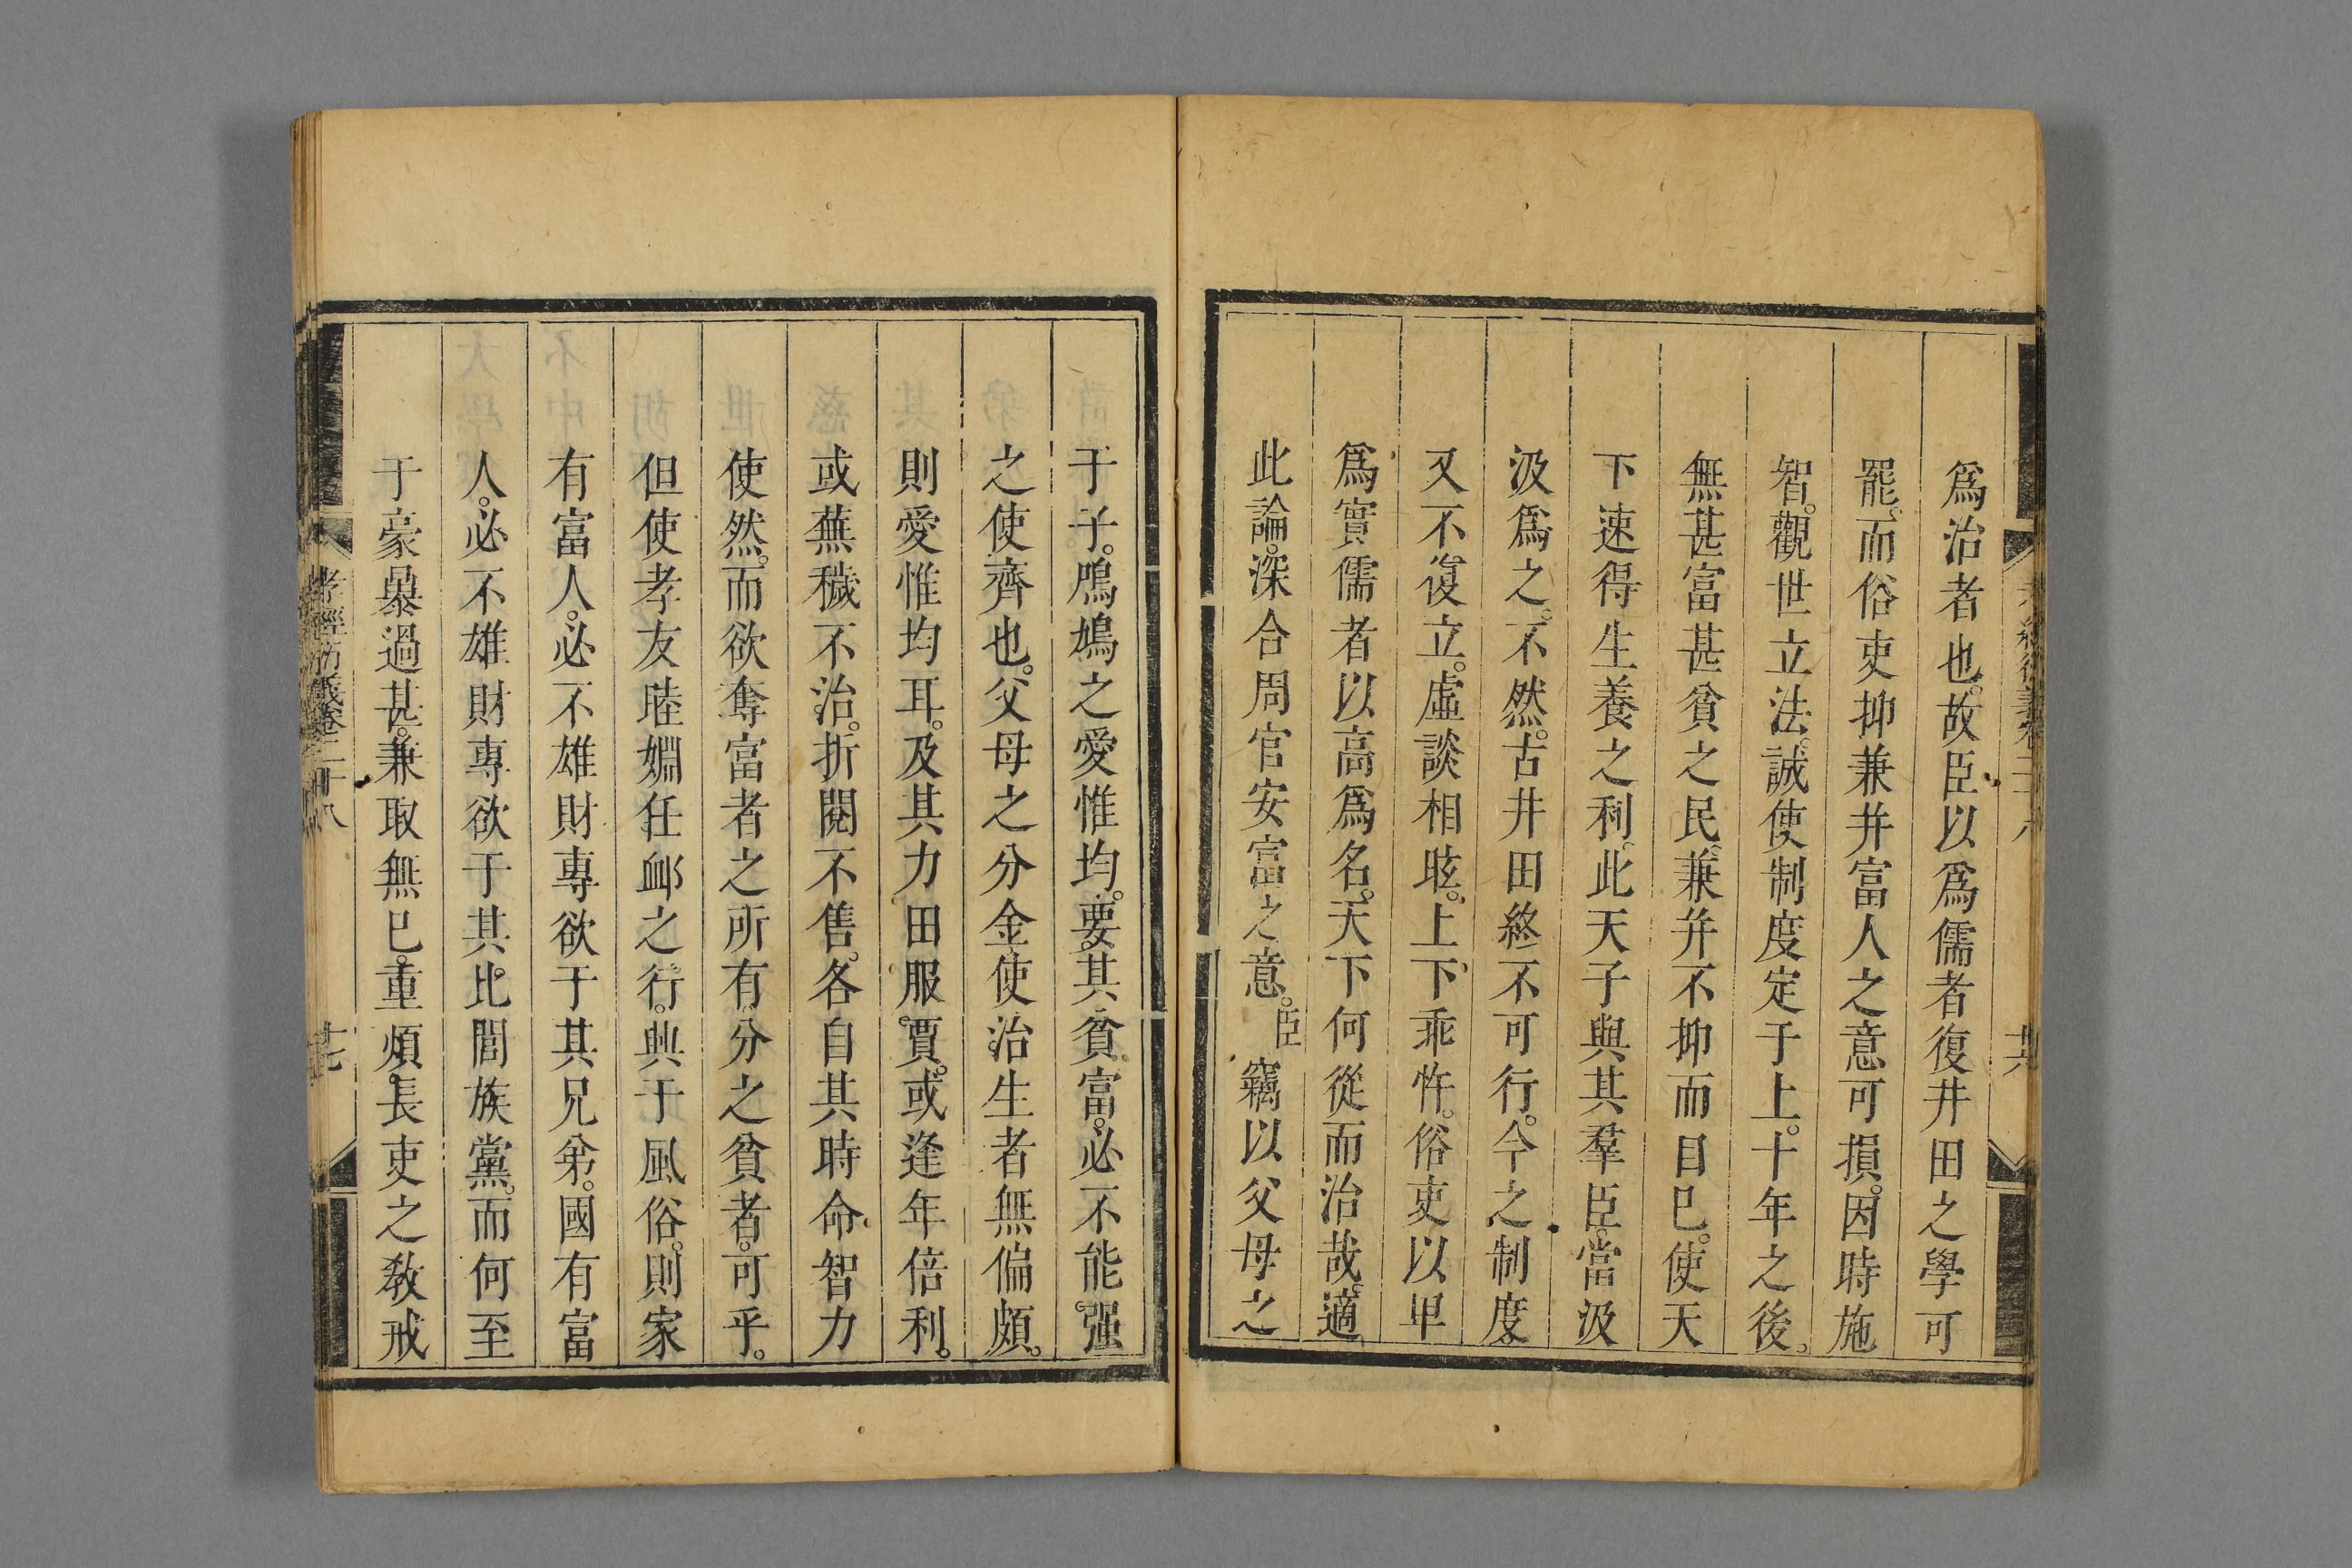 爲治者也。故臣以爲儒者復井田之學可
罷。而俗吏抑兼并富人之意可損。因時施
智。觀世立法。誠使制度定于上。十年之後。
無甚富甚貧之民。兼并不抑而自已。使天
下速得生養之利。此天子與其羣臣。當汲
汲爲之。不然。古井田終不可行。今之制度。
又不復立。虛談相眩。上下乖忤。俗吏以卑
爲實。儒者以高爲名。天下何從而治哉。適
此論。深合周官安富之意。臣竊以父母之
孝經衍義卷二十八
廿六
于子。鳲鳩之愛惟均。要其貧富。必不能强
之使齊也。父母之分金使治生者無偏頗。
則愛惟均耳。及其力田服賈。或逢年倍利。
或蕪穢不治。折閱不售。各自其時命智力
使然。而欲奪富者之所有分之貧者。可乎。
但使孝友睦婣任卹之行。興于風俗。則家
有富人。必不雄財專欲于其兄弟。國有富
人。必不雄財專欲于其比閭族黨。而何至
于豪暴過甚。兼取無已。重煩長吏之敎戒
孝經衍義卷二十八
廿七